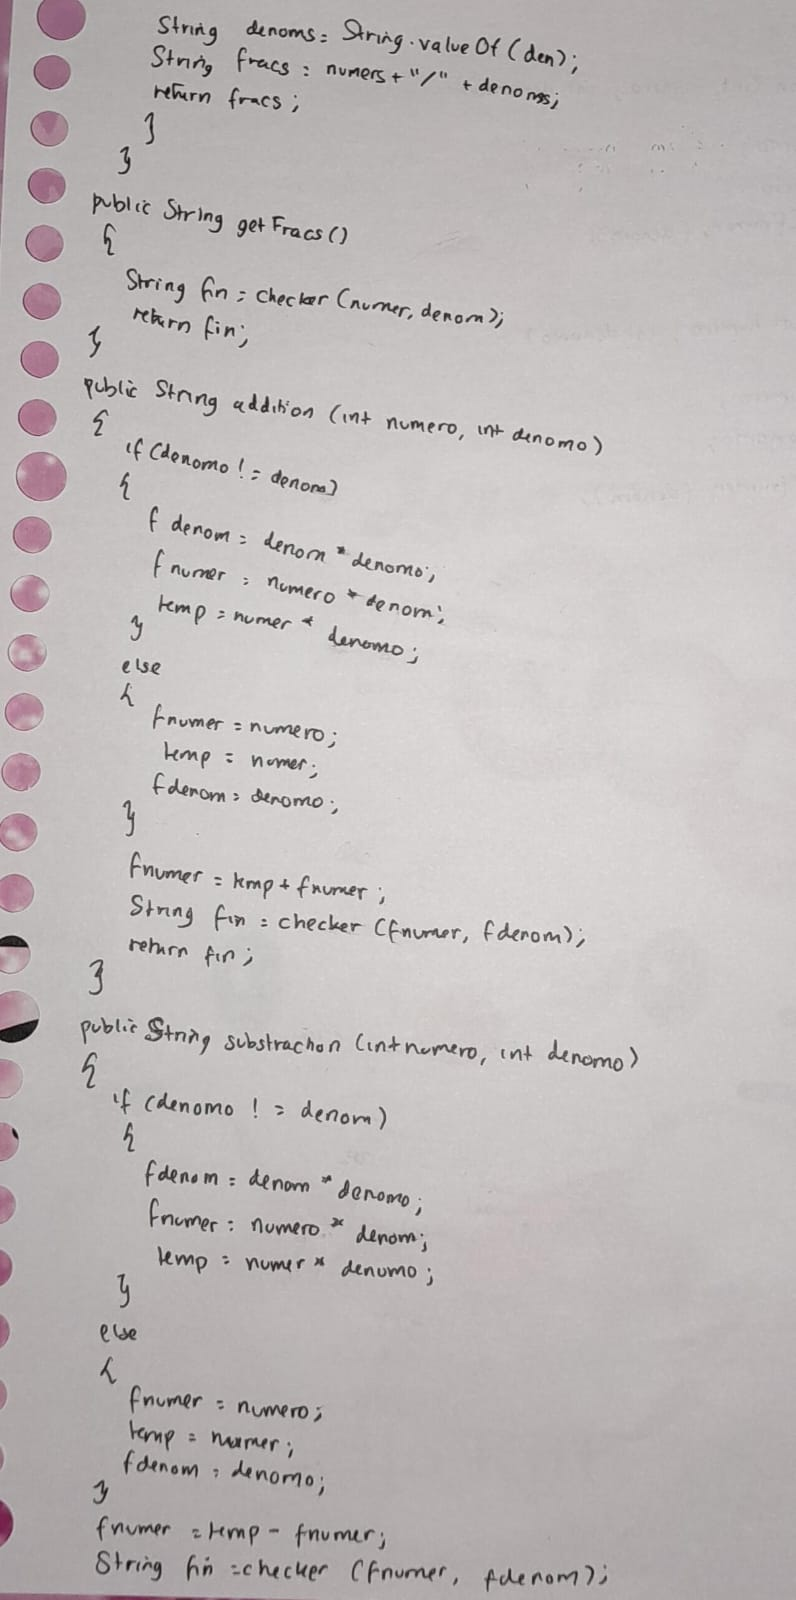 String denoms = String.valueOf(den);
String fracs = numers+"/" + denoms;
return fracs;
}
}
public String getFracs()
{
String fin = checker (numer, denom);
return fin;
}
public String addition (int numero, int denomo)
{
if (denomo != denom)
{
fdenom = denom * denomo;
fnumer = numero * denom;
temp = numer * denomo;
}
else
{
fnumer = numero;
temp = numer;
fdenom = denomo;
}
fnumer = temp + fnumer;
String fin = checker (fnumer, fdenom);
return fin;
}
public String substraction (int numero, int denomo)
{
if (denomo != denom)
{
fdenom = denom * denomo;
fnumer = numero * denom;
temp = numer * denomo;
}
else
{
fnumer = numero;
temp = numer;
fdenom = denomo;
}
fnumer = temp - fnumer;
String fin = checker (fnumer, fdenom);